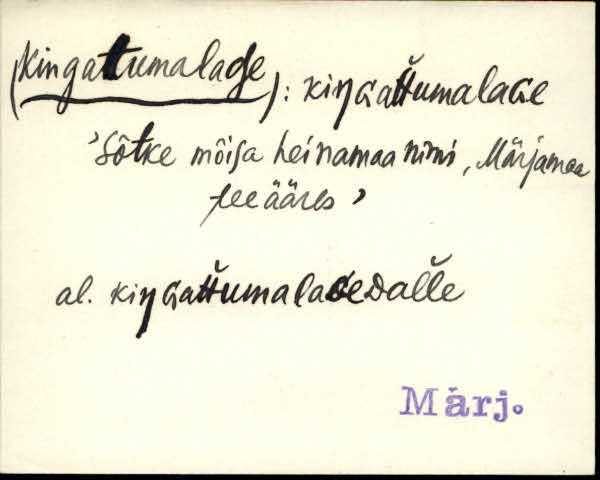 (Kingattumalage): kiŋɢat̆t̆umalaɢe
'Sõtke mõisa heinamaa nimi, Märjamaa
tee ääres'
al. kiŋɢat̆t̆umalaɢeᴅal̆l̆e
Märj.